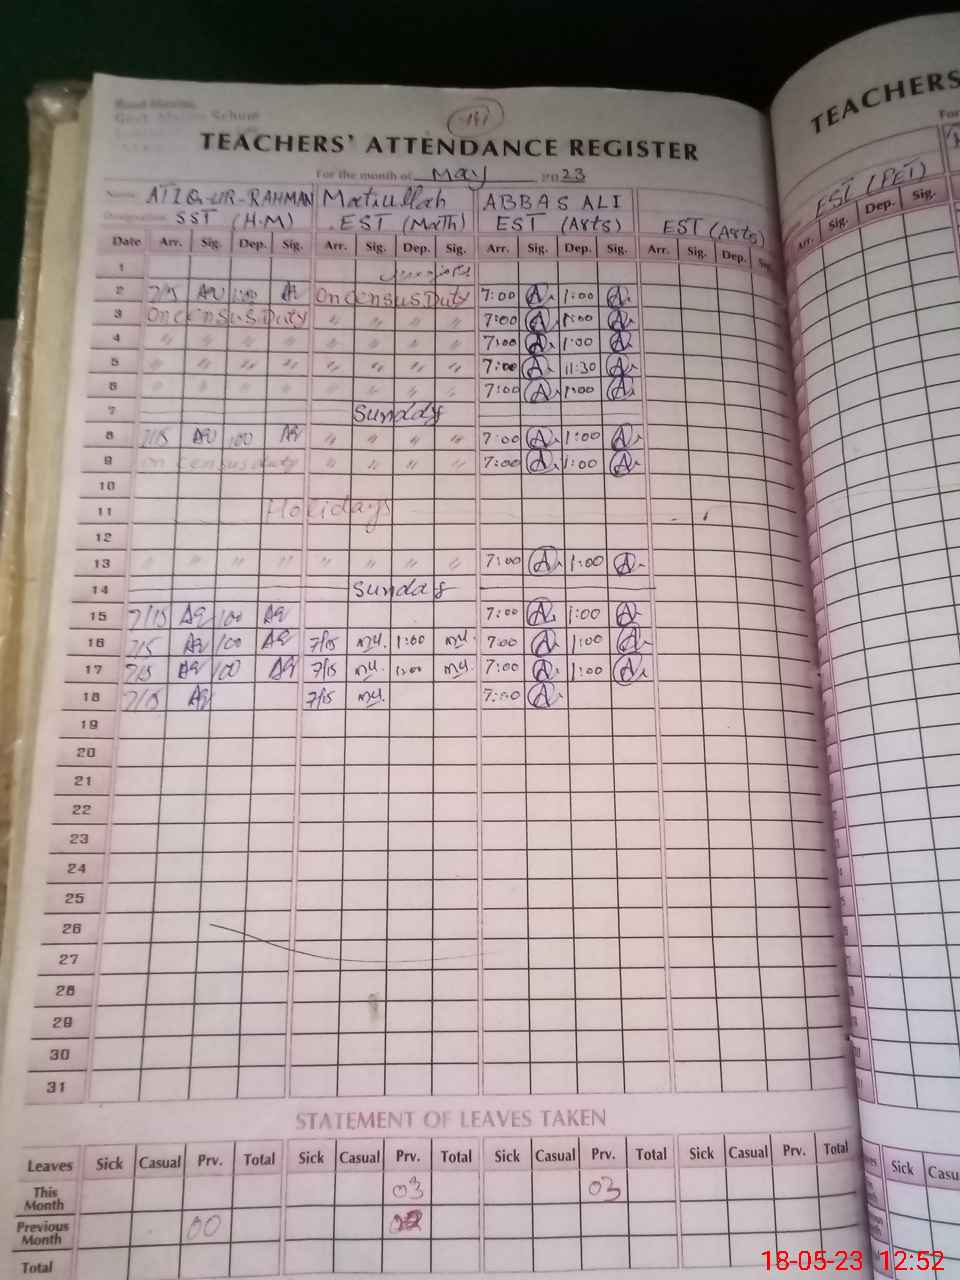 TEACHERS' ATTENDANCE REGISTER
For the month of May 2023
Name ATIQ-UR-RAHMAN Matiullah ABBAS ALI
Designation SST (H.M) EST (Math) EST (Arts) EST (Arts)
Date Arr. Sig. Dep. Sig. Arr. Sig. Dep. Sig. Arr. Sig. Dep. Sig. Arr. Sig. Dep. Sig.
1
2 7/15 1:00 On Census Duty 7:00 A 1:00 A
3 On Census Duty " " " " 7:00 A 1:00 A
4 " " " " " " " " 7:00 A 1:00 A
5 " " " " " " " " 7:00 A 11:30 A
6 " " " " " " " " 7:00 A 1:00 A
7 Sunday
8 7/15 100 " " " " 7:00 A 1:00 A
9 on census duty " " " " 7:00 A 1:00 A
10
11 Holidays
12
13 " " " " " " " " 7:00 A 1:00 A
14 Sunday
15 7/15 100 7:00 A 1:00 A
16 7/5 100 7/15 1:00 7:00 A 1:00 A
17 7/5 100 7/15 1:00 7:00 A 1:00 A
18 7/15 7/15 7:00 A
19
20
21
22
23
24
25
26
27
28
29
30
31
STATEMENT OF LEAVES TAKEN
Leaves Sick Casual Prv. Total Sick Casual Prv. Total Sick Casual Prv. Total Sick Casual Prv. Total
This Month 03 03
Previous Month 00
Total
TEACHERS
EST (PET)
Arr. Sig. Dep. Sig.
Sick
18-05-23 12:52